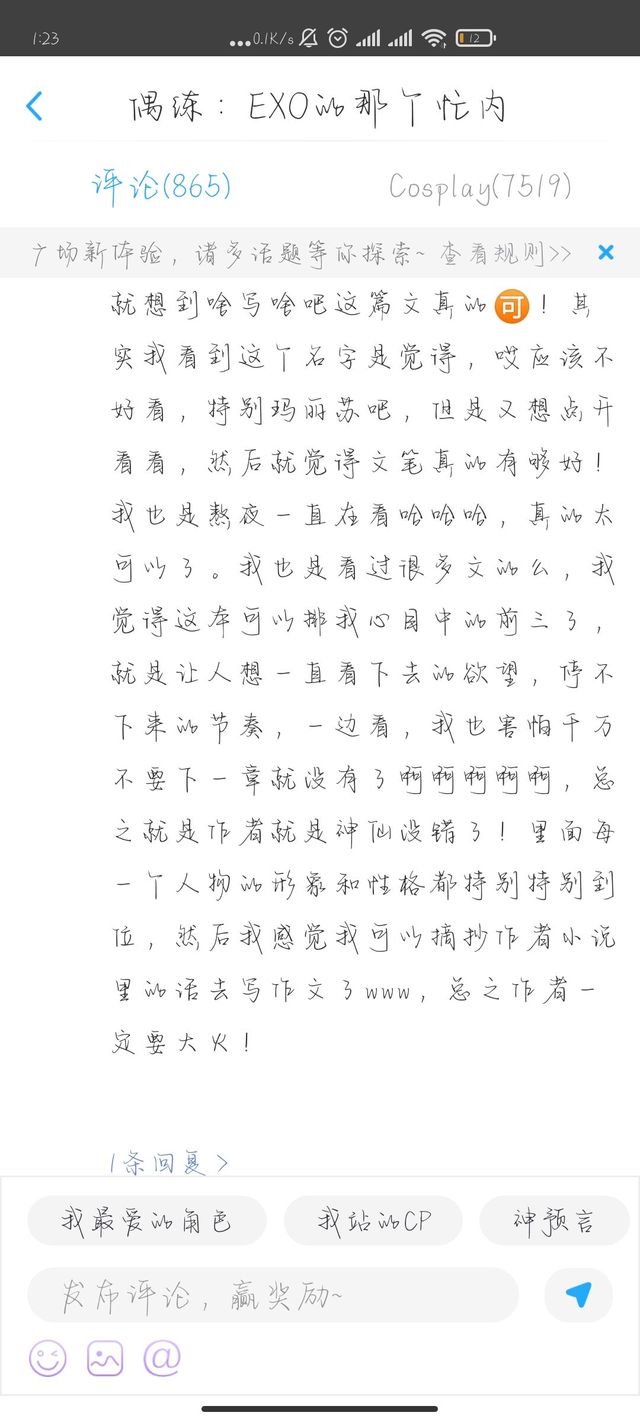 1:23
0.1K/s
12
偶练：EXO的那个忙内
评论(865)
Cosplay(7519)
广场新体验，诸多话题等你探索~ 查看规则>>
就想到啥写啥吧这篇文真的🉑！其
实我看到这个名字是觉得，哎应该不
好看，特别玛丽苏吧，但是又想点开
看看，然后就觉得文笔真的有够好！
我也是熬夜一直在看哈哈哈，真的太
可以了。我也是看过很多文的么，我
觉得这本可以排我心目中的前三了，
就是让人想一直看下去的欲望，停不
下来的节奏，一边看，我也害怕千万
不要下一章就没有了啊啊啊啊啊，总
之就是作者就是神仙没错了！里面每
一个人物的形象和性格都特别特别到
位，然后我感觉我可以摘抄作者小说
里的话去写作文了www，总之作者一
定要大火！
1条回复>
我最爱的角色
我站的CP
神预言
发布评论，赢奖励~